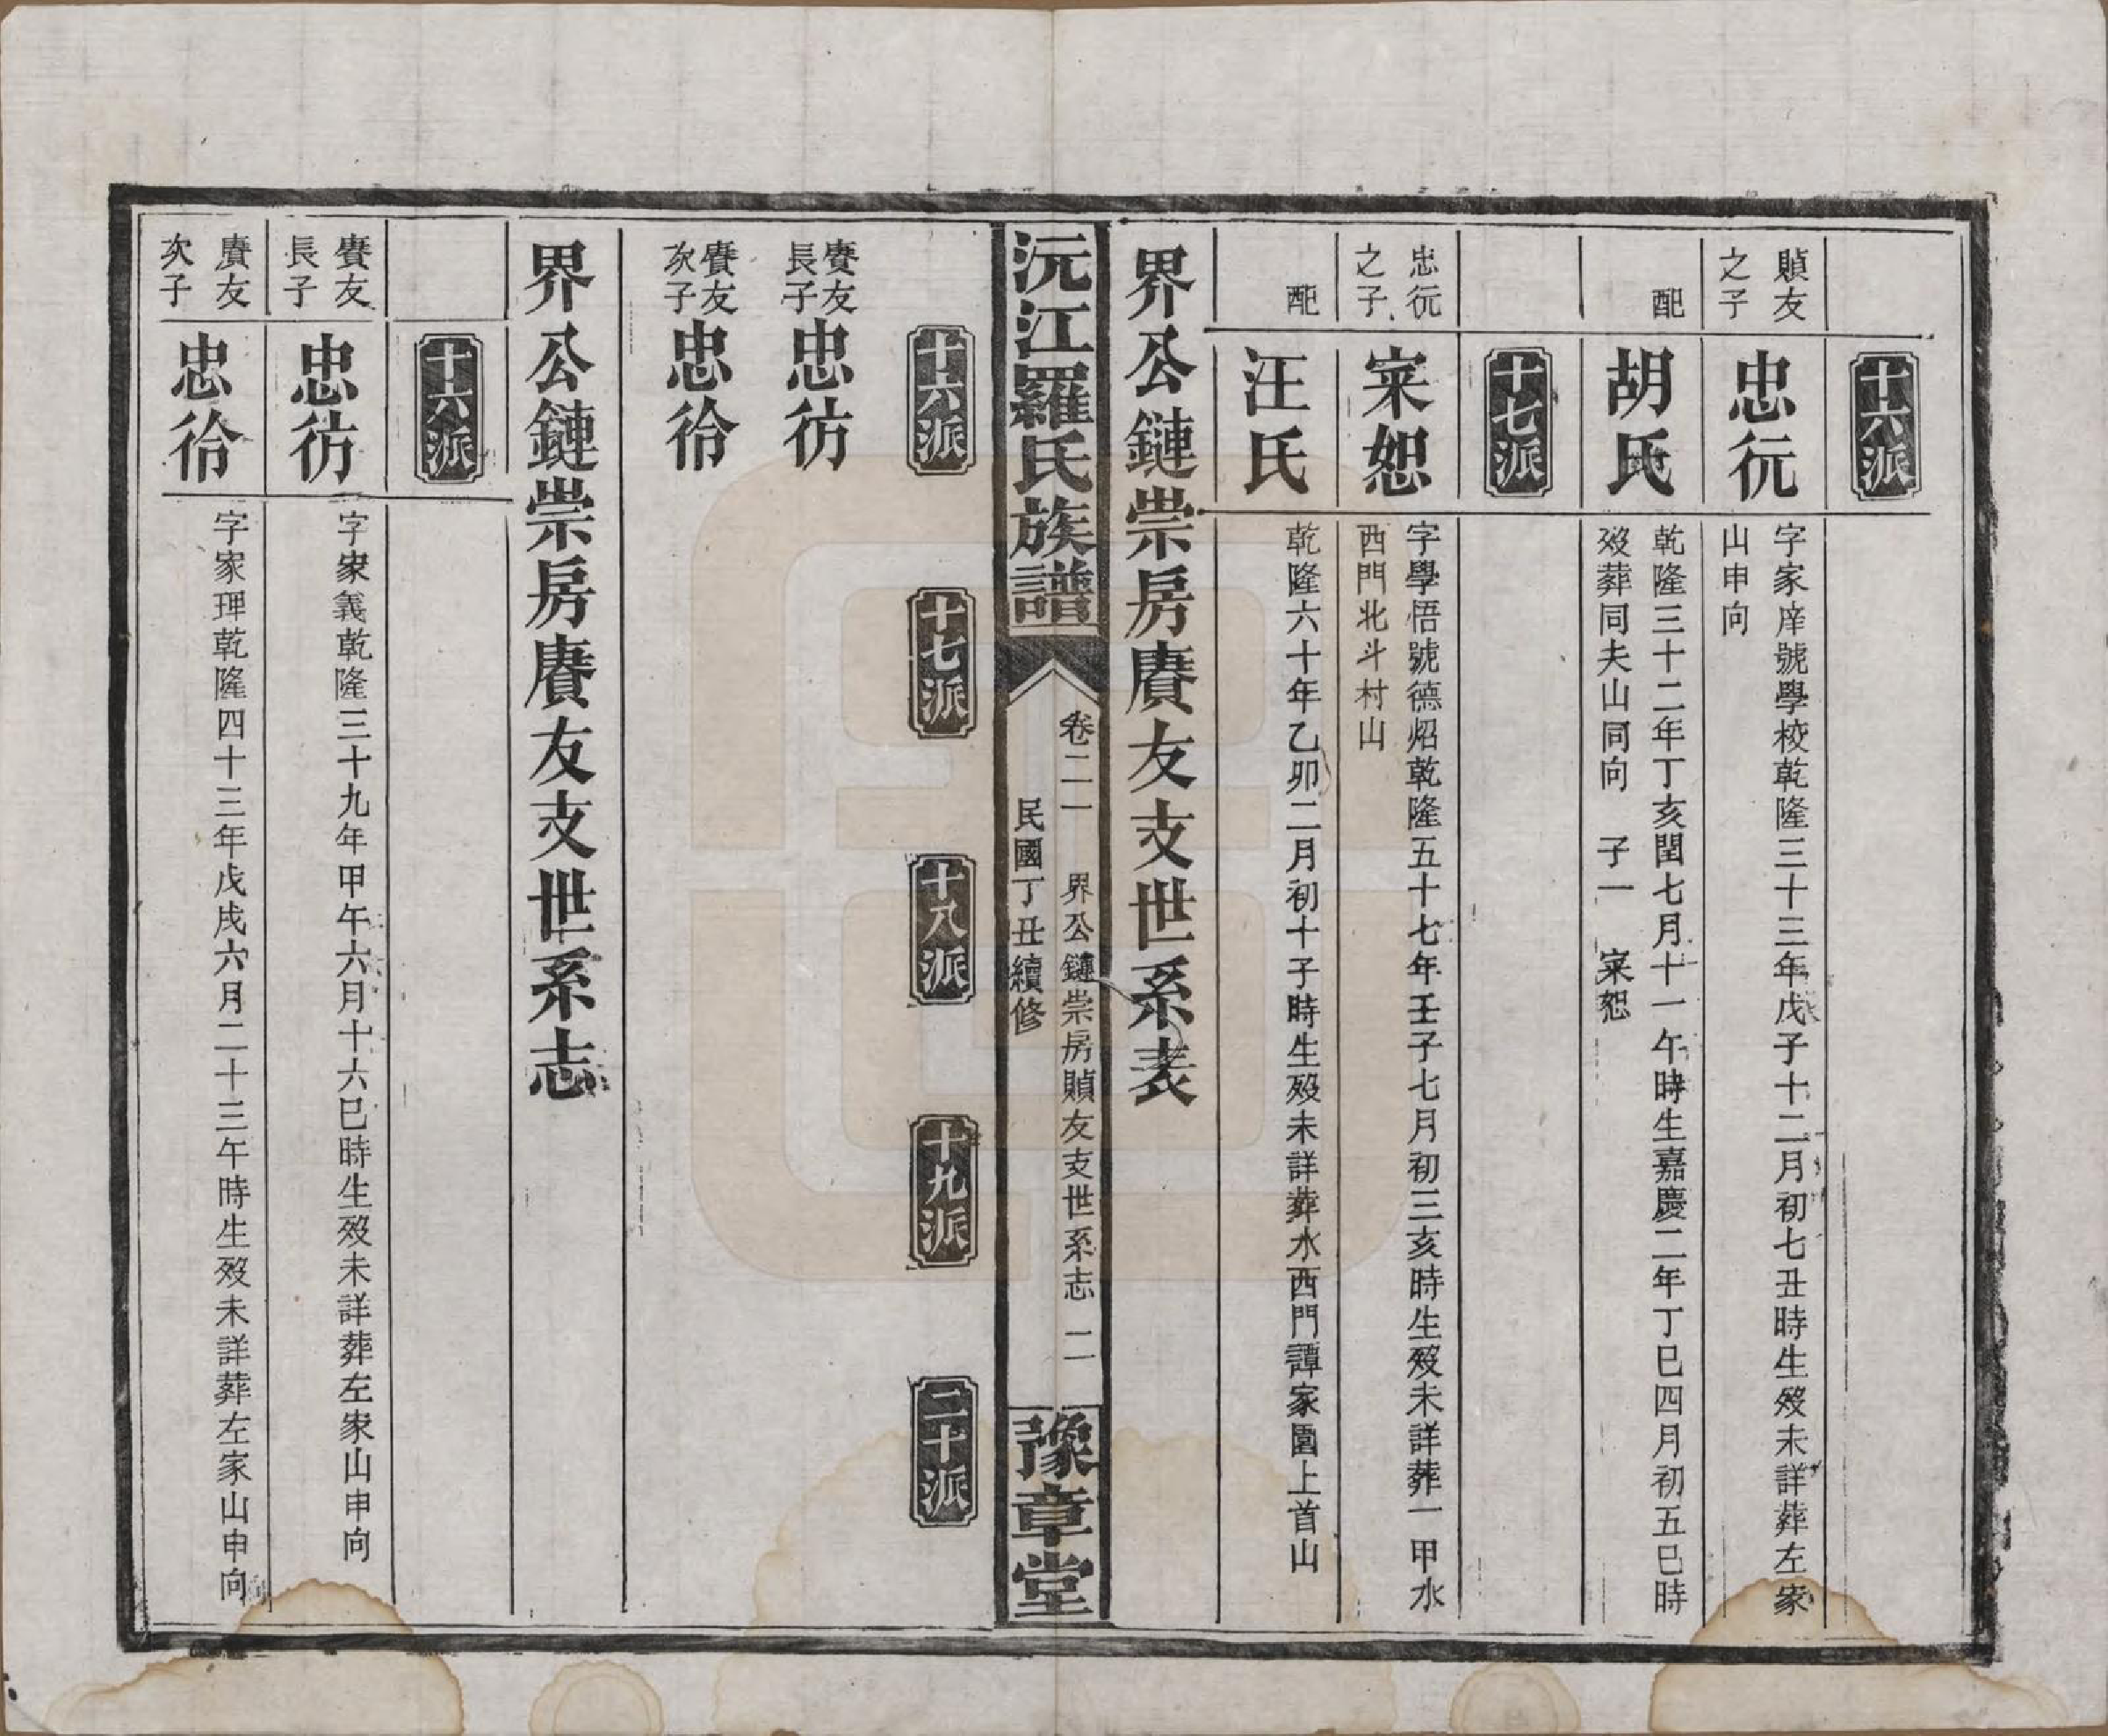 十六派
貞友之子
忠衍
字家庠號學校乾隆三十三年戊子十二月初七丑時生歿未詳葬左家
山申向
配
胡氏
乾隆三十二年丁亥閏七月十一午時生嘉慶二年丁巳四月初五巳時
歿葬同夫山同向　子一　寀恕
十七派
忠衍之子
寀恕
字學悟號德炤乾隆五十七年壬子七月初三亥時生歿未詳葬一甲水
西門北斗村山
配
汪氏
乾隆六十年乙卯二月初十子時生歿未詳葬水西門譚家園上首山
界公鏈崇房賡友支世系表
沅江羅氏族譜
卷二一　界公鏈崇房貞友支世系志　二
民國丁丑續修
豫章堂
十六派　十七派　十八派　十九派　二十派
賡友長子忠彷
賡友次子忠彾
界公鏈崇房賡友支世系志
十六派
賡友長子
忠彷
字家義乾隆三十九年甲午六月十六巳時生歿未詳葬左家山申向
賡友次子
忠彾
字家理乾隆四十三年戊戌六月二十三午時生歿未詳葬左家山申向